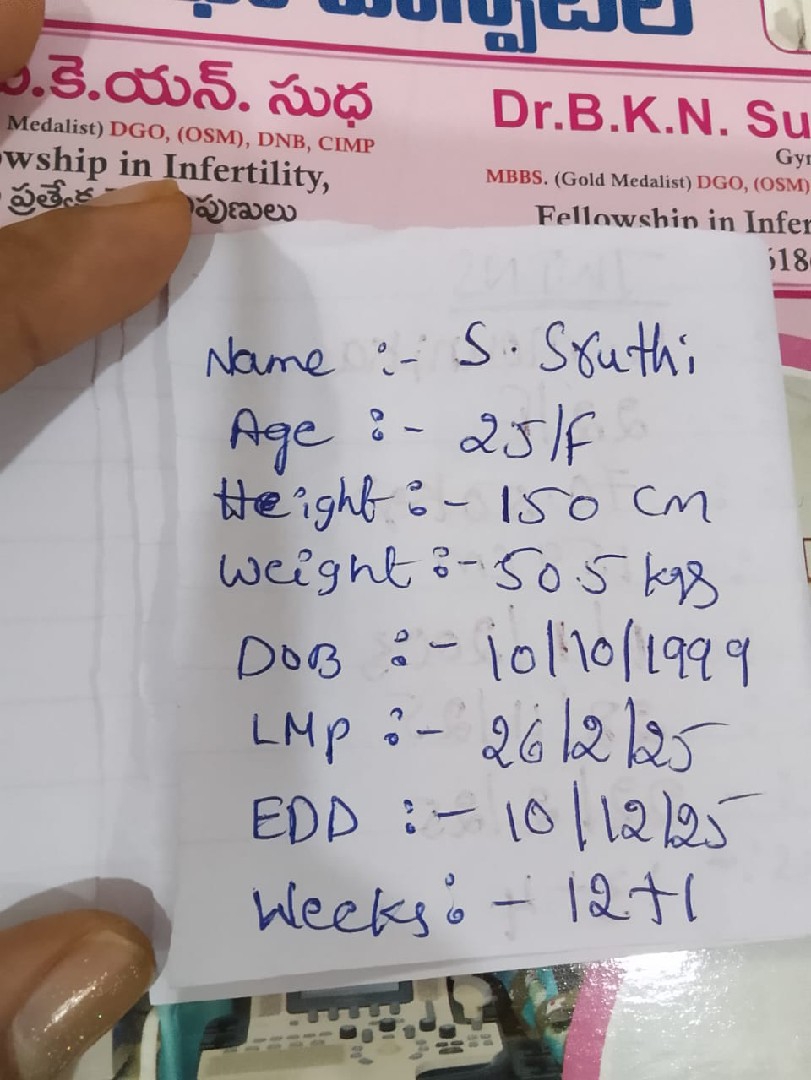 హాస్పిటల్
.కె.యన్. సుధ
Dr.B.K.N. Su
Medalist) DGO, (OSM), DNB, CIMP
Gyn
wship in Infertility,
MBBS. (Gold Medalist) DGO, (OSM)
ప్రత్యేక నిపుణులు
Fellowship in Infer
Name :- S. Sruthi
Age :- 25/F
Height :- 150 cm
Weight :- 50.5 kgs
DOB :- 10/10/1999
LMP :- 26/2/25
EDD :- 10/12/25
Weeks :- 12+1